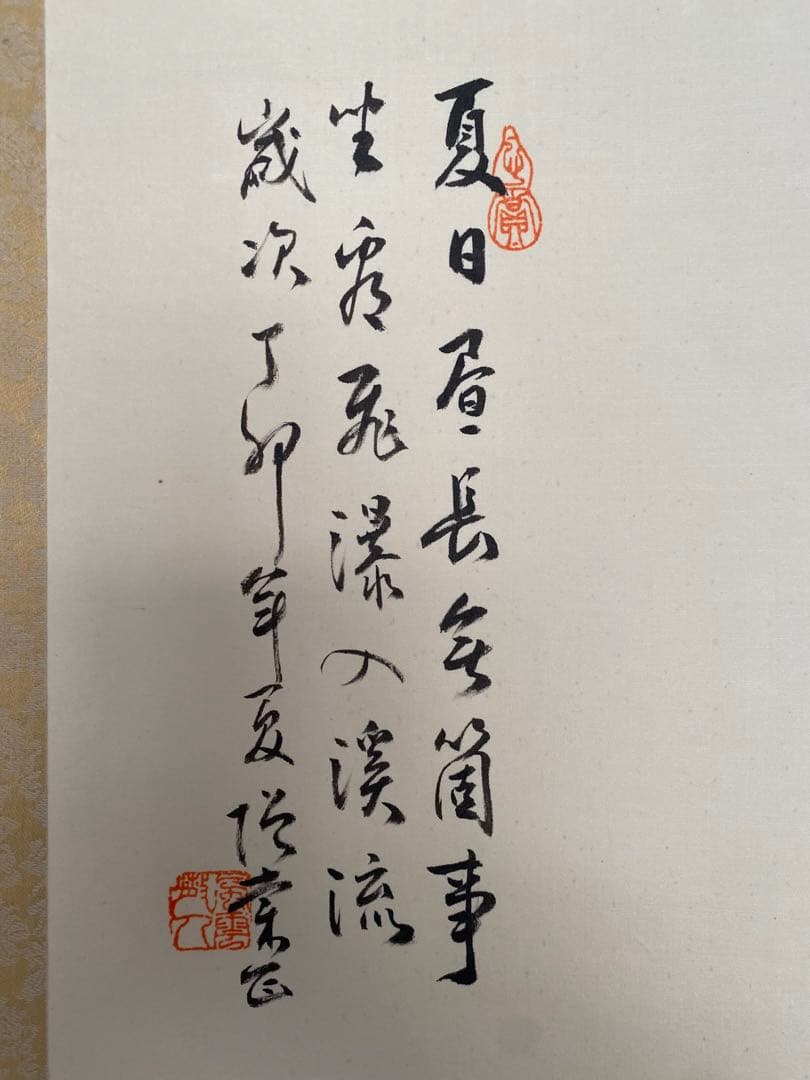 夏日昼長無箇事
坐看飛瀑入溪流
歲次丁卯年夏